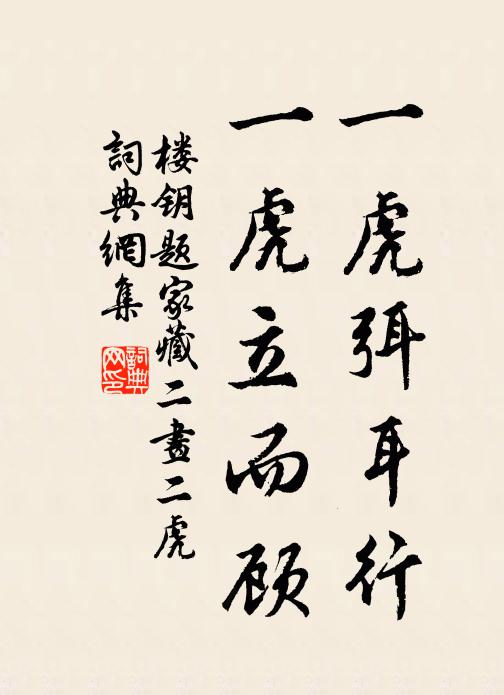 一虎弭耳行
一虎立而顾
楼钥题家藏二畫二虎
詞典網集
詞典网印